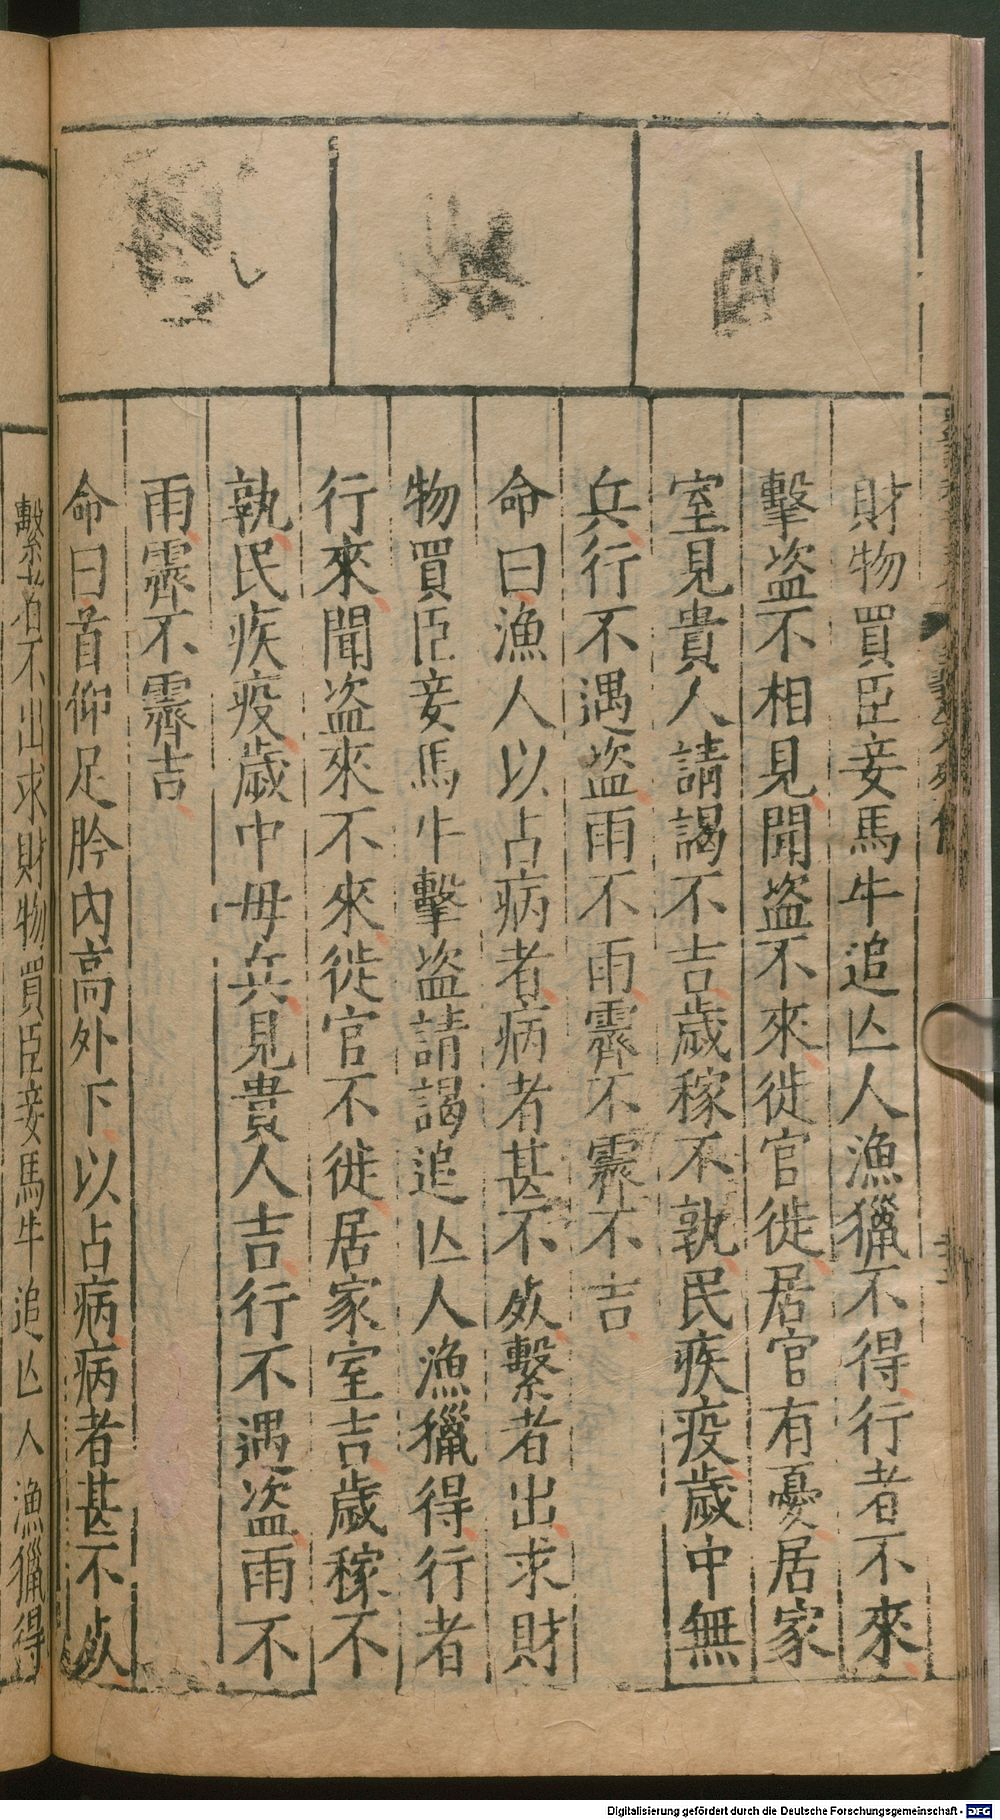 財物買臣妾馬牛追亾人漁獵不得行者不來
擊盜不相見聞盜不來徙官徙居官有憂居家
室見貴人請謁不吉歲稼不孰民疾疫歲中無
兵行不遇盜雨不雨霽不霽不吉
命曰漁人以占病者病者甚不死繫者出求財
物買臣妾馬牛擊盜請謁追亾人漁獵得行者
行來聞盜來不來徙官不徙居家室吉歲稼不
孰民疾疫歲中毋兵見貴人吉行不遇盜雨不
雨霽不霽吉
命曰首仰足肣內高外下以占病病者甚不死
繫者不出求財物買臣妾馬牛追亾人漁獵得
Digitalisierung gefördert durch die Deutsche Forschungsgemeinschaft - DFG